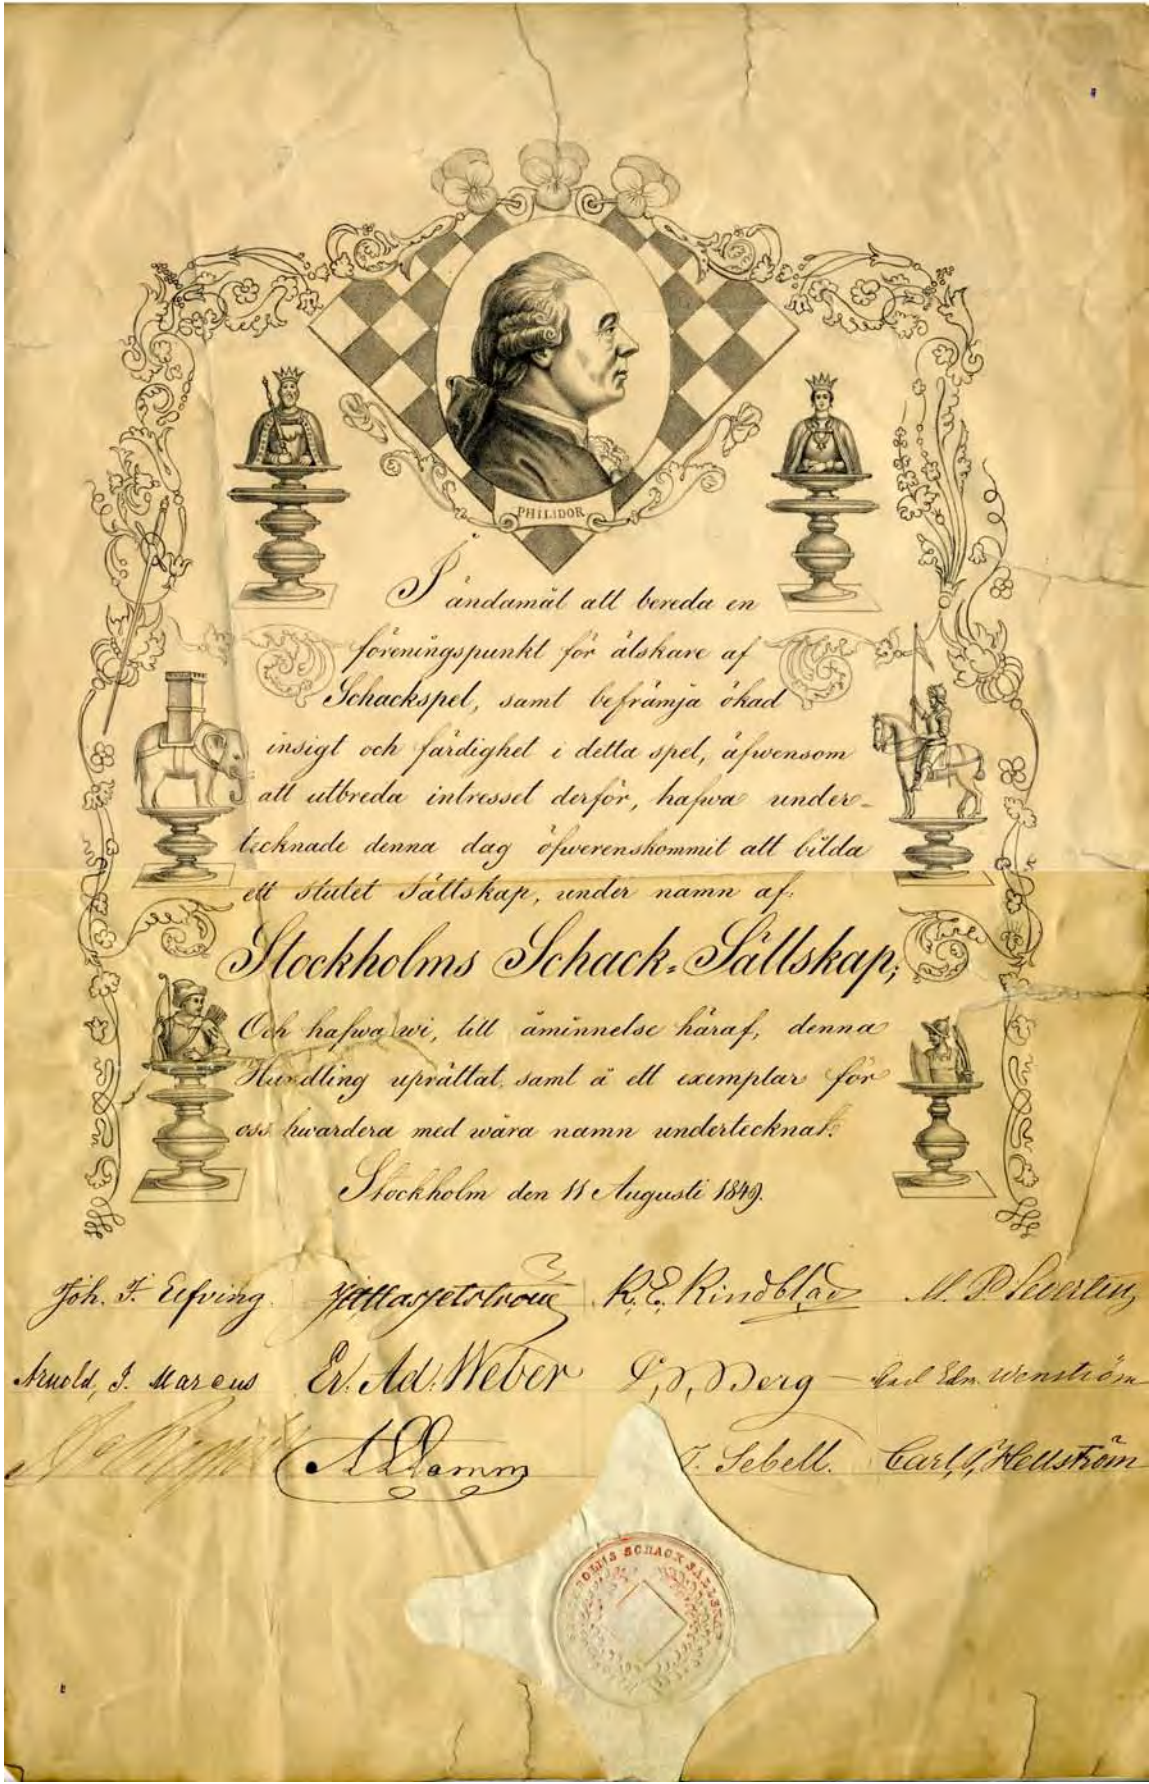 PHILIDOR
I ändamål att bereda en
föreningspunkt för älskare af
Schackspel, samt befrämja ökad
insigt och färdighet i detta spel, äfwensom
att utbreda intresset derför, hafwa under-
tecknade denna dag öfwerenskommit att bilda
ett slutet Sällskap, under namn af:
Stockholms Schack-Sällskap;
Och hafwa wi, till åminnelse häraf, denna
Handling uprättat, samt å ett exemplar för
oss hwardera med wåra namn undertecknat.
Stockholm den 11 Augusti 1849.
Joh. F. Elfving. R. E. Rindblad M. P. Severlin
Arnold, J. Marcus Er. Ad. Weber Berg Carl Edv. Wenström
A Damm J. Sebell. Carl Hellström
SCHACK SÄLLSKAP